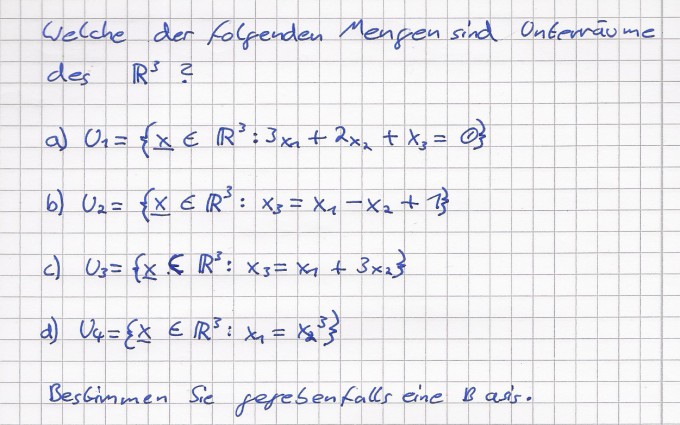 Welche der folgenden Mengen sind Unterräume
des ℝ³ ?
a) U₁ = {x̲ ∈ ℝ³ : 3x₁ + 2x₂ + x₃ = 0}
b) U₂ = {x̲ ∈ ℝ³ : x₃ = x₁ - x₂ + 1}
c) U₃ = {x̲ ∈ ℝ³ : x₃ = x₁ + 3x₂}
d) U₄ = {x̲ ∈ ℝ³ : x₁ = x₂³}
Bestimmen Sie gegebenfalls eine Basis.